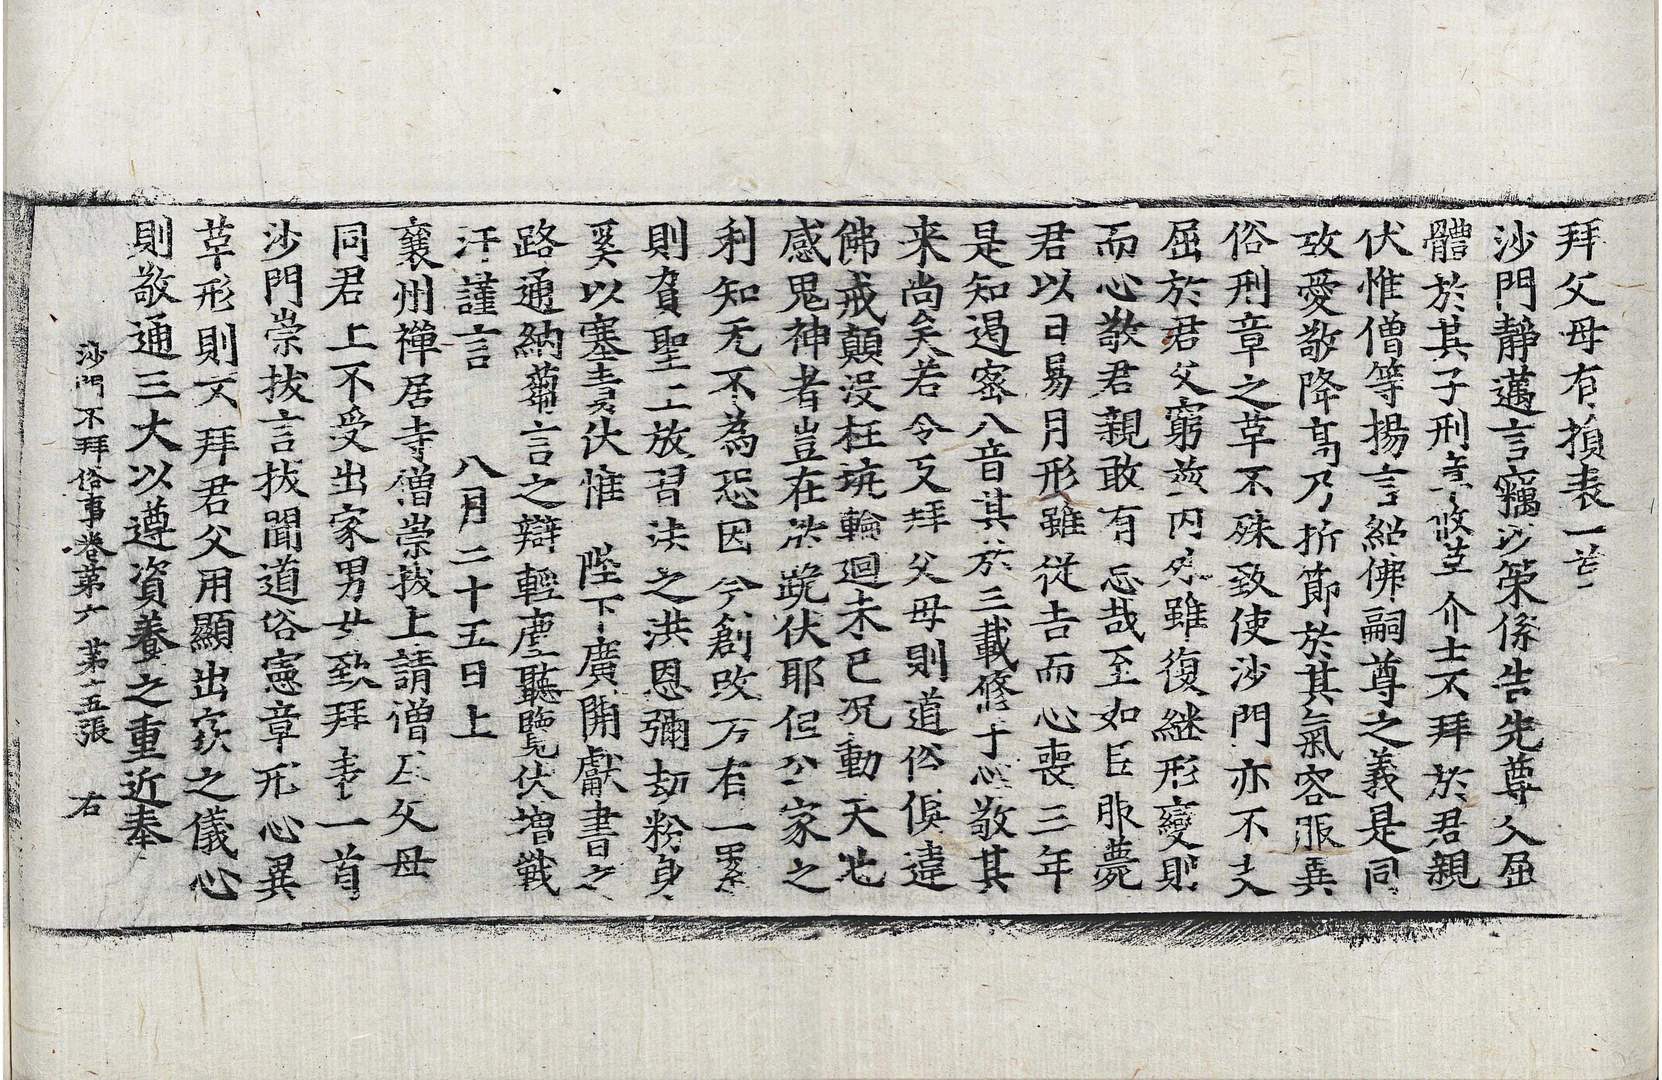 拜父母有損表一首
沙門靜邁言竊以策係告先尊父屈
體於其子刑章攸豈介士不拜於君親
伏惟僧等揚言紹佛嗣尊之義是同
故愛敬降高乃折節於其氣容服異
俗刑章之草不殊致使沙門亦不丈
屈於君父窮茲內外雖復継形變則
而心敬君親敢有忘哉至如臣服薨
君以日易月形雖従吉而心喪三年
是知遏密八音其於三載修于心敬其
来尚矣若令反拜父母則道俗俱違
佛戒顛没枉坑輪迴未已况動天地
感鬼神者豈在於跪伏耶但公家之
利知无不為恐因今創改万有一累
則負聖上放習法之洪恩彌劫粉身
奚以塞責伏惟 陛下廣開獻書之
路通納蒭言之辯輕塵聽覽伏增戰
汗謹言 八月二十五日上
襄州禪居寺僧崇拔上請僧尼父母
同君上不受出家男女致拜表一首
沙門崇拔言拔聞道俗憲章形心異
草形則不拜君父用顯出家之儀心
則敬通三大以遵資養之重近奉
沙門不拜俗事卷第六 第十五張 右